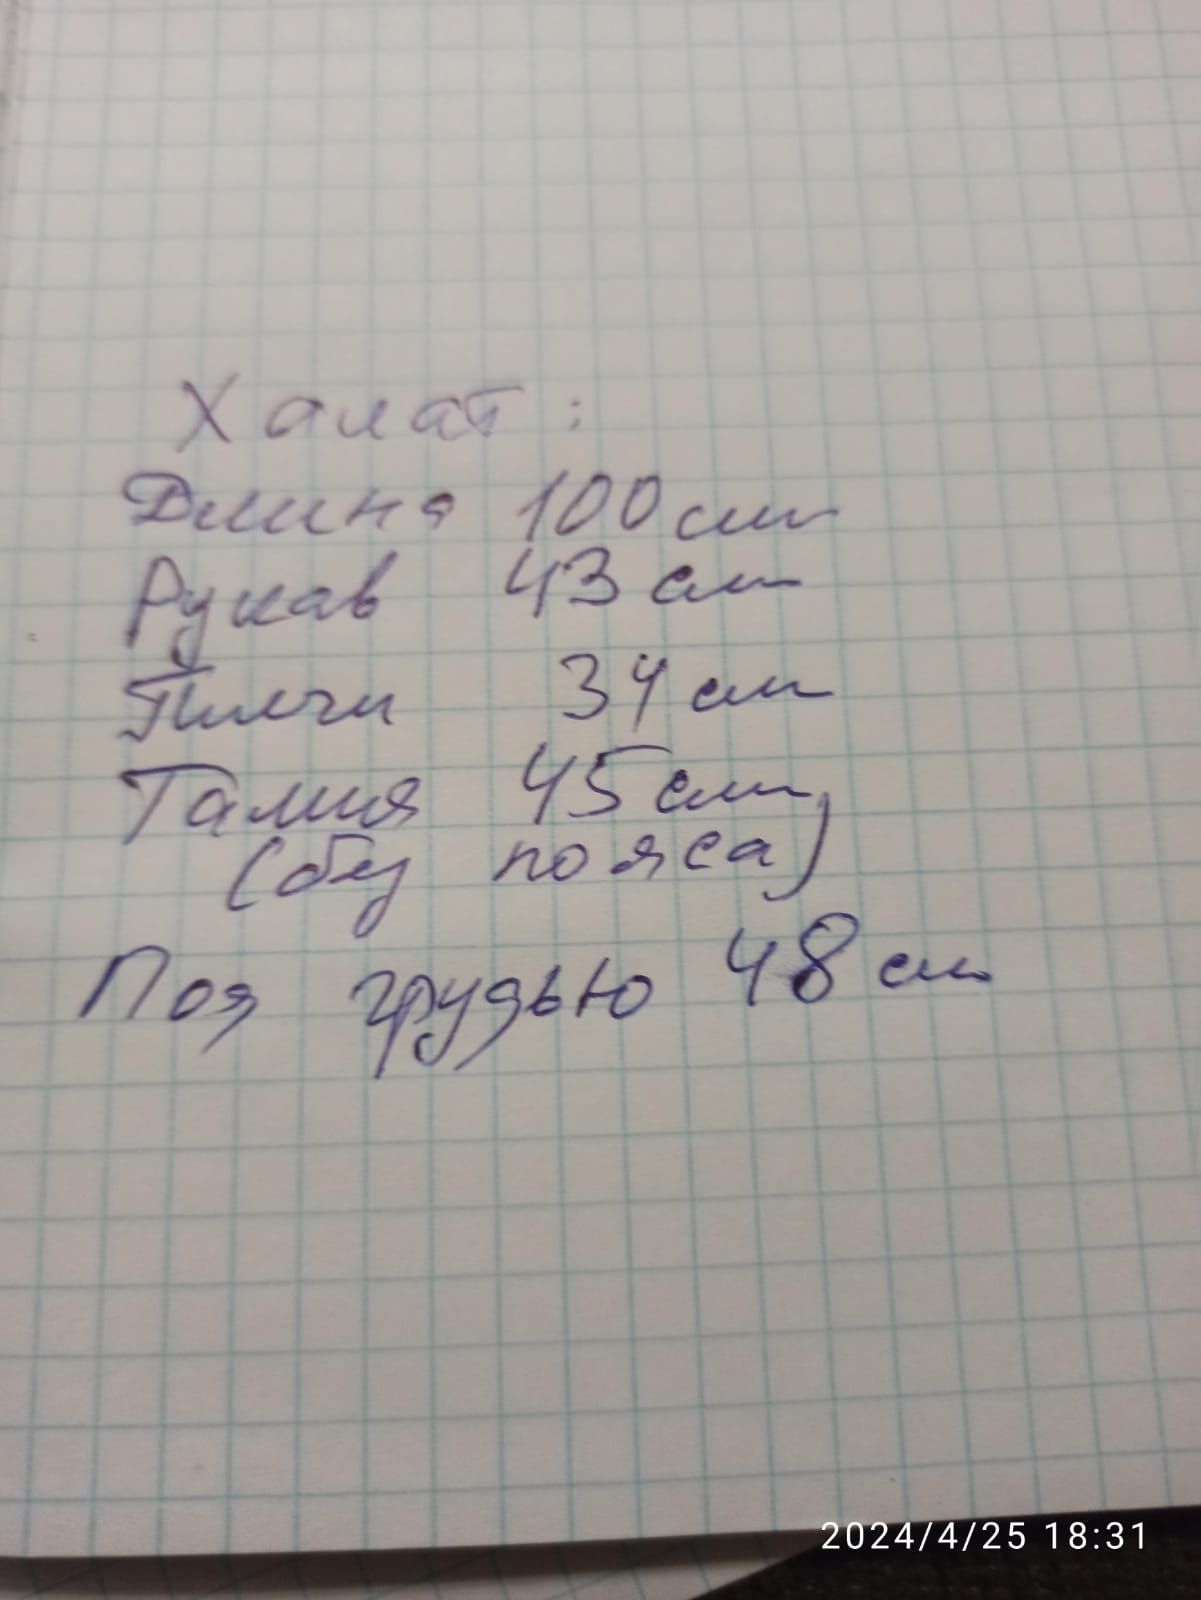 Халат:
Длина 100 см
Рукав 43 см
Плечи 34 см
Талия 45 см
(без пояса)
Под грудью 48 см
2024/4/25 18:31